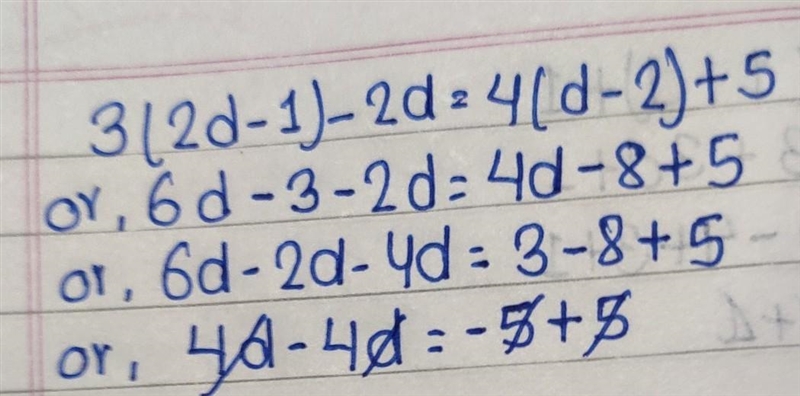 3(2d-1)-2d=4(d-2)+5
or, 6d-3-2d=4d-8+5
or, 6d-2d-4d=3-8+5
or, 4d-4d=-5+5